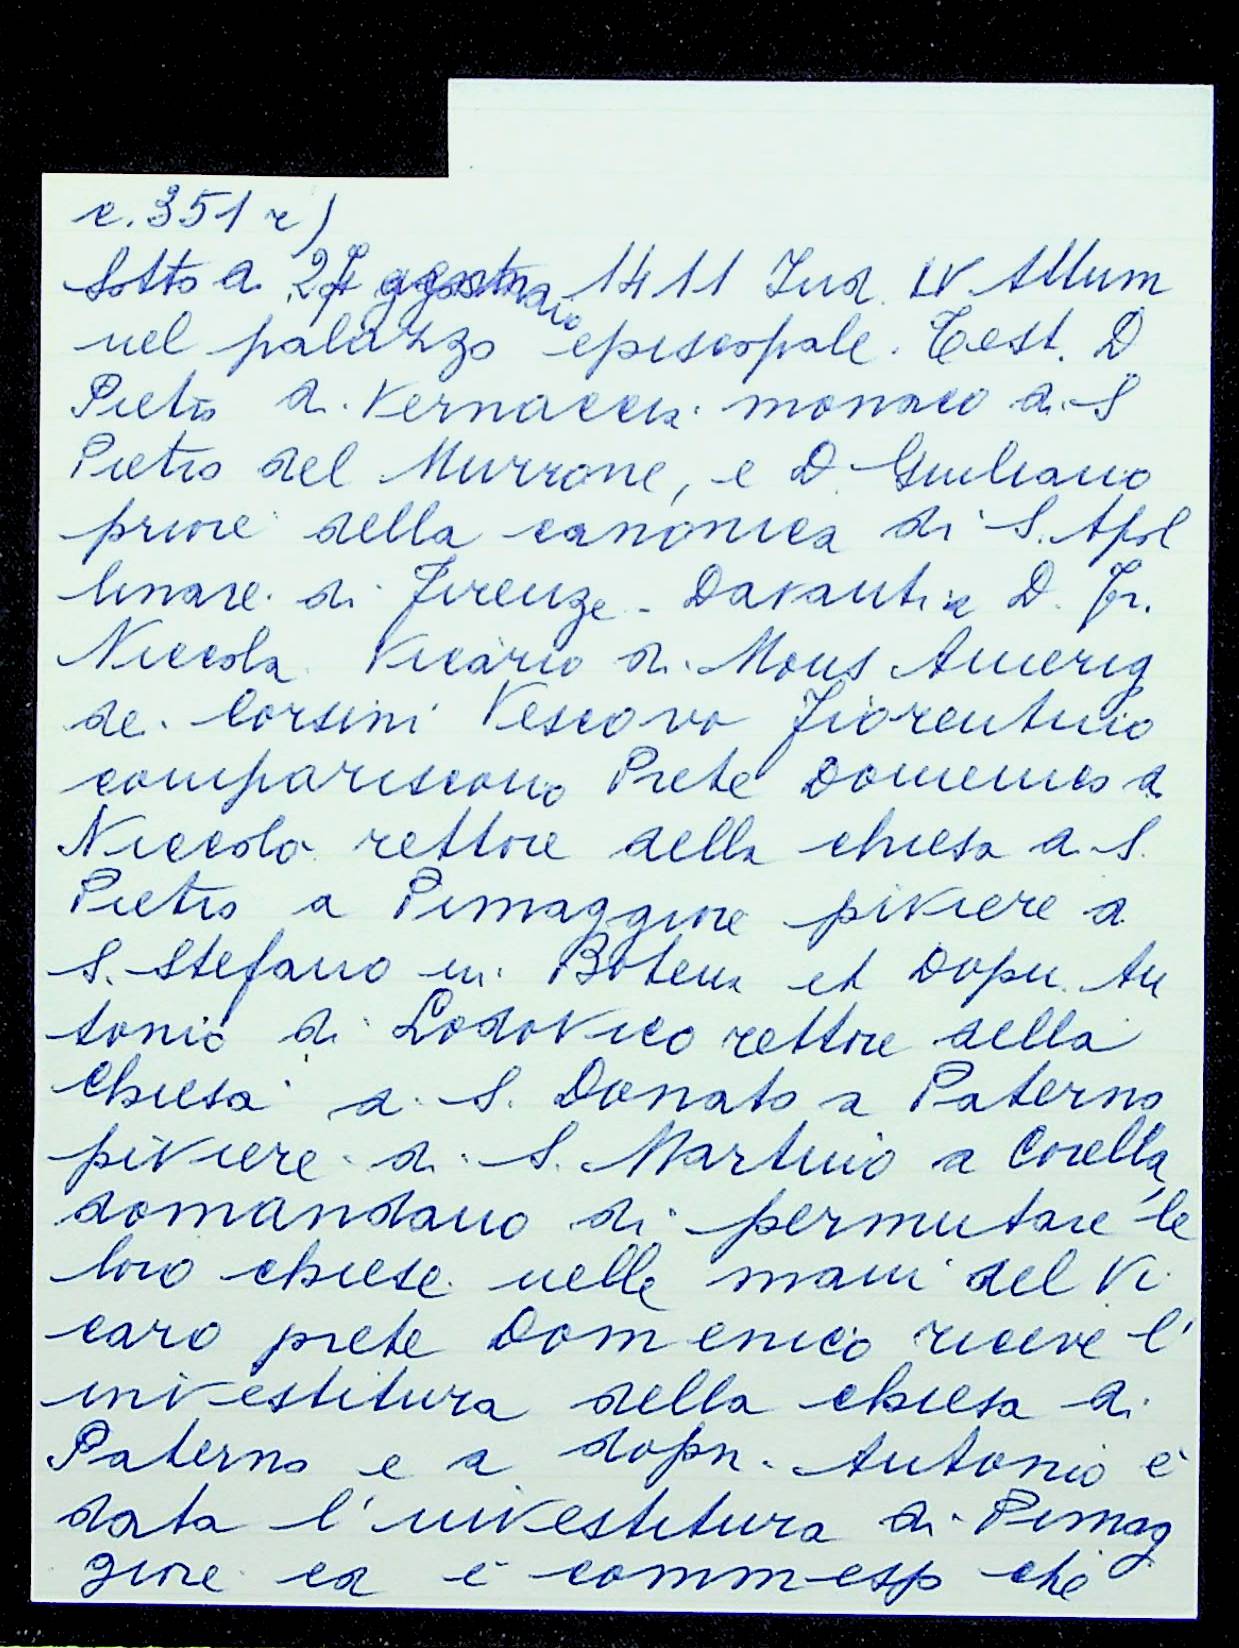 c. 351 r)
Sotto dì 27 1411 Ind. IV Actum
nel palazzo episcopale. Test. D
Pietro di Vernaccia monaco di S
Pietro del Murrone, e D. Giuliano
priore della canonica di S. Apol
linare di Firenze - Davanti a D. Fr.
Niccola Vicario di Mons Amerig
de Corsini Vescovo Fiorentino
compariscono Prete Domenico di
Niccolo rettore della chiesa di S.
Pietro a Pimaggiore piviere di
S. Stefano in Botena et Dopn. An
tonio di Lodovico rettore della
chiesa di S. Donato a Paterno
piviere di S. Martino a Corella,
domandano di permutare le
loro chiese nelle mani del Vi
cario prete Domenico riceve l'
investitura della chiesa di
Paterno e a dopn. Antonio è
data l'investitura di Pimag
giore ed è commesso che